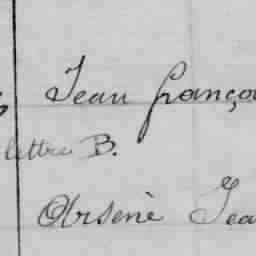 Jean franço
lettre B.
Arsène Jea